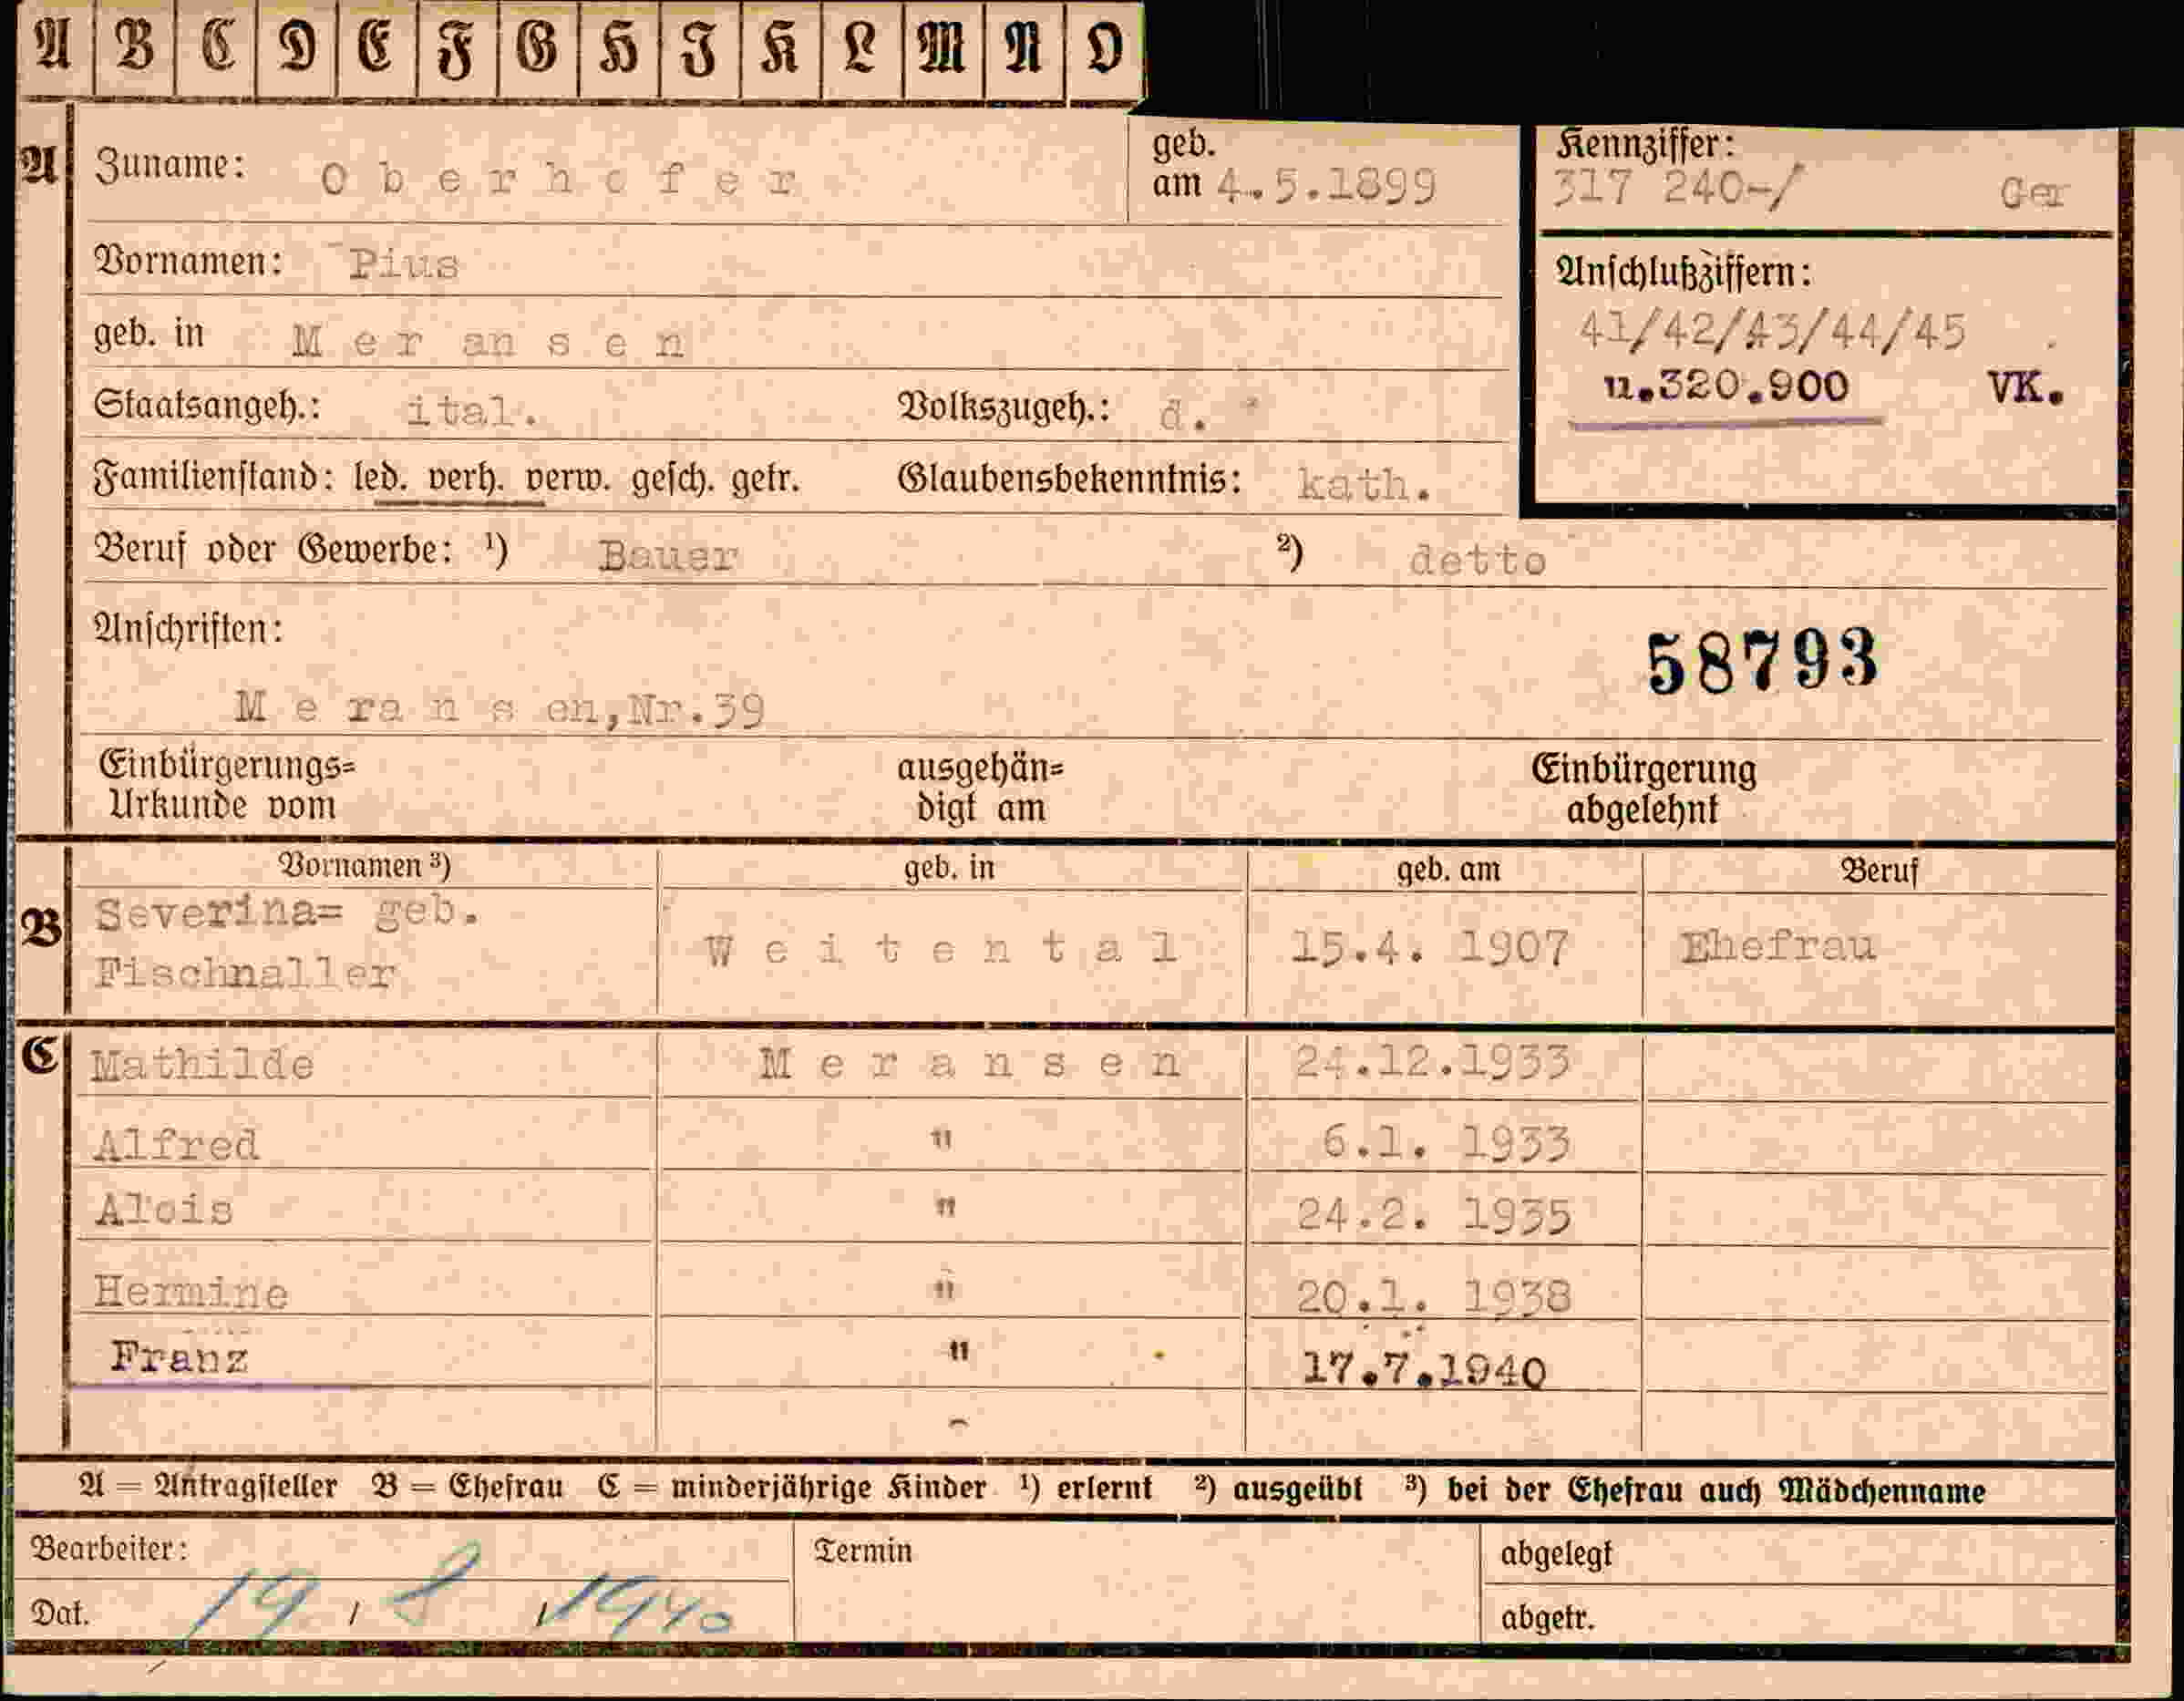 A B C D E F G H I K L M N O
A Zuname: Oberhofer geb. am 4.5.1899 Kennziffer: 317 240-/ Ger
Vornamen: Pius
Anschlußziffern:
geb. in Meransen 41/42/43/44/45
u.320.900 VK.
Staatsangeh.: ital. Volkszugeh.: d.
Familienstand: led. verh. verw. gesch. getr. Glaubensbekenntnis: kath.
Beruf oder Gewerbe: ¹) Bauer ²) detto
Anschriften:
58793
Meransen, Nr. 39
Einbürgerungs= Urkunde vom ausgehän= digt am Einbürgerung abgelehnt
Vornamen ³) geb. in geb. am Beruf
B Severina= geb. Fischnaller Weitental 15.4. 1907 Ehefrau
C Mathilde Meransen 24.12.1933
Alfred " 6.1. 1933
Alois " 24.2. 1935
Hermine " 20.1. 1938
Franz " 17.7.1940
A = Antragsteller B = Ehefrau C = minderjährige Kinder ¹) erlernt ²) ausgeübt ³) bei der Ehefrau auch Mädchenname
Bearbeiter: Termin abgelegt
Dat. 19 / 8 / 1940 abgetr.